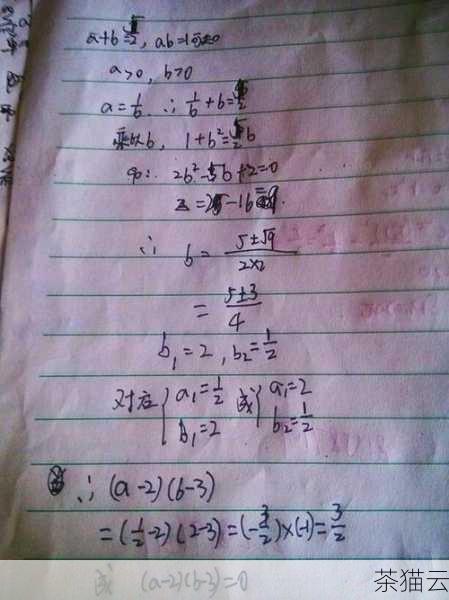 a+b=5/2, ab=1可知
a>0, b>0
a=1/b ∴ 1/b+b=5/2
乘以b, 1+b²=5/2b
2b²-5b+2=0
Δ=25-16=9
∴ b=(5±√9)/(2×2)
=(5±3)/4
b₁=2, b₂=1/2
对应{a₁=1/2 b₁=2 或{a₁=2 b₂=1/2
∴ (a-2)(b-3)
=(1/2-2)(2-3)=(-3/2)×(-1)=3/2
或 (a-2)(b-3)=0
茶猫云